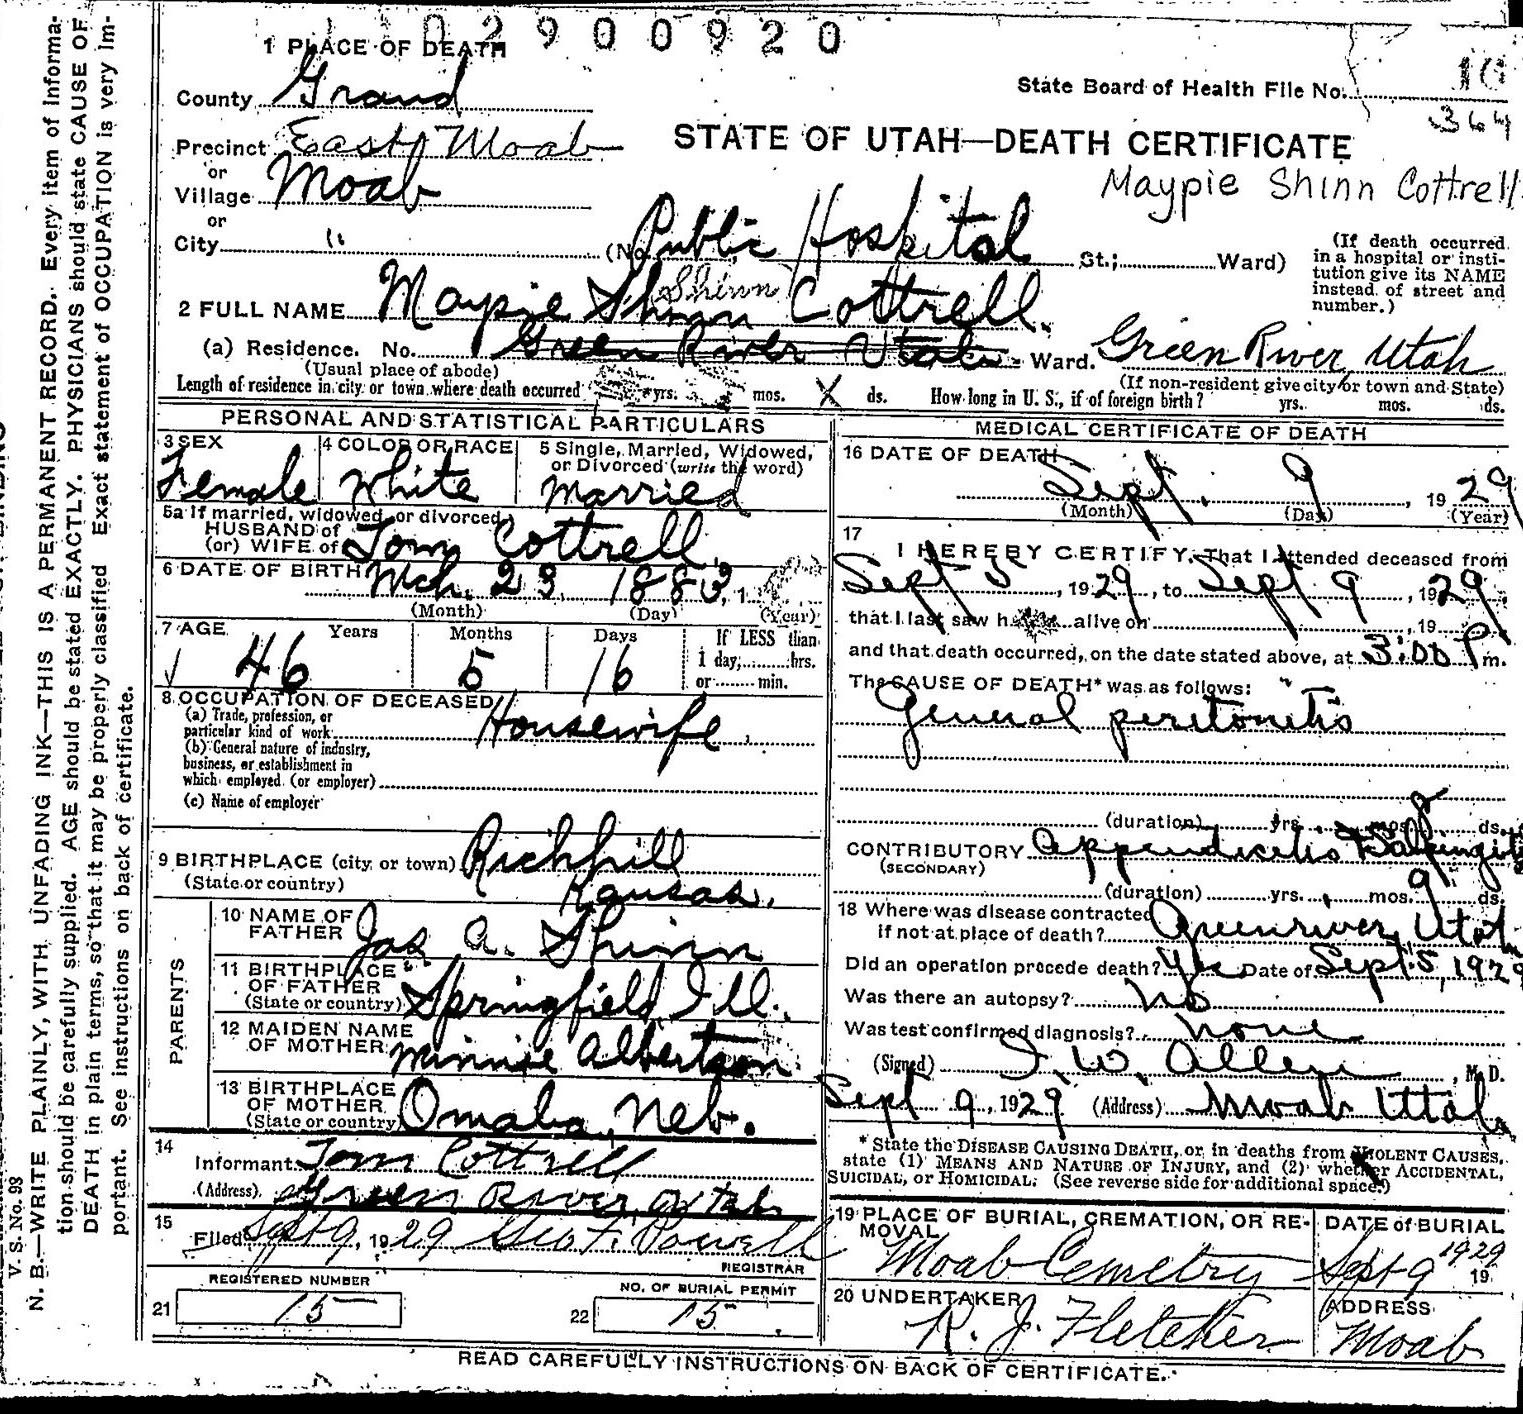 1 02900920
1 PLACE OF DEATH
County Grand
State Board of Health File No. 364
Precinct East Moab
STATE OF UTAH—DEATH CERTIFICATE
or
Village Moab
Maypie Shinn Cottrell
or
City " (No. Public Hospital St.; Ward)
(If death occurred in a hospital or insti-
tution give its NAME
instead of street and
number.)
Shinn
2 FULL NAME Maypie Shinn Cottrell.
(a) Residence. No. Green River Utah Ward. Green River, Utah
(Usual place of abode) (If non-resident give city or town and State)
Length of residence in city or town where death occurred yrs. mos. X ds. How long in U. S., if of foreign birth? yrs. mos. ds.
PERSONAL AND STATISTICAL PARTICULARS
3 SEX 4 COLOR OR RACE 5 Single, Married, Widowed,
or Divorced (write the word)
Female White Married
5a If married, widowed, or divorced
HUSBAND of
(or) WIFE of Tom Cottrell.
6 DATE OF BIRTH Mch. 23, 1883, 1
(Month) (Day) (Year)
7 AGE Years Months Days If LESS than
46 5 16 1 day, hrs.
or min.
8 OCCUPATION OF DECEASED
(a) Trade, profession, or
particular kind of work Housewife
(b) General nature of industry,
business, or establishment in
which employed (or employer)
(c) Name of employer
9 BIRTHPLACE (city or town) Richhill
(State or country) Kansas.
PARENTS
10 NAME OF
FATHER Jas. A. Shinn
11 BIRTHPLACE
OF FATHER
(State or country) Springfield, Ill.
12 MAIDEN NAME
OF MOTHER Minnie Albertson
13 BIRTHPLACE
OF MOTHER
(State or country) Omaha, Neb.
14
Informant Tom Cottrell
(Address) Green River, Utah
15
Filed Sept 9, 1929 Geo F. Powell
REGISTRAR
REGISTERED NUMBER NO. OF BURIAL PERMIT
21 15 22 15
MEDICAL CERTIFICATE OF DEATH
16 DATE OF DEATH
Sept. 9, 1929
(Month) (Day) (Year)
17
I HEREBY CERTIFY, That I attended deceased from
Sept 5, 1929, to Sept 9, 1929,
that I last saw h alive on , 19
and that death occurred, on the date stated above, at 3:00 P m.
The CAUSE OF DEATH* was as follows:
General peritonitis
(duration) yrs. mos. ds.
CONTRIBUTORY Appendicitis & Salpingitis
(SECONDARY)
(duration) yrs. mos. 9 ds.
18 Where was disease contracted
if not at place of death? Greenriver, Utah
Did an operation precede death? Yes Date of Sept. 5, 1929
Was there an autopsy? No
Was test confirmed diagnosis? None
(Signed) I. W. Allen, M. D.
Sept 9, 1929 (Address) Moab Utah
* State the DISEASE CAUSING DEATH, or, in deaths from VIOLENT CAUSES,
state (1) MEANS AND NATURE OF INJURY, and (2) whether ACCIDENTAL,
SUICIDAL, or HOMICIDAL. (See reverse side for additional space.)
19 PLACE OF BURIAL, CREMATION, OR RE-
MOVAL
DATE of BURIAL
Moab Cemetry Sept 9 1929
19
20 UNDERTAKER ADDRESS
R. J. Fletcher Moab
READ CAREFULLY INSTRUCTIONS ON BACK OF CERTIFICATE.
V. S. No. 98
N. B.—WRITE PLAINLY, WITH UNFADING INK—THIS IS A PERMANENT RECORD. Every item of Informa-
tion should be carefully supplied. AGE should be stated EXACTLY. PHYSICIANS should state CAUSE OF
DEATH in plain terms, so that it may be properly classified Exact statement of OCCUPATION is very im-
portant. See instructions on back of certificate.